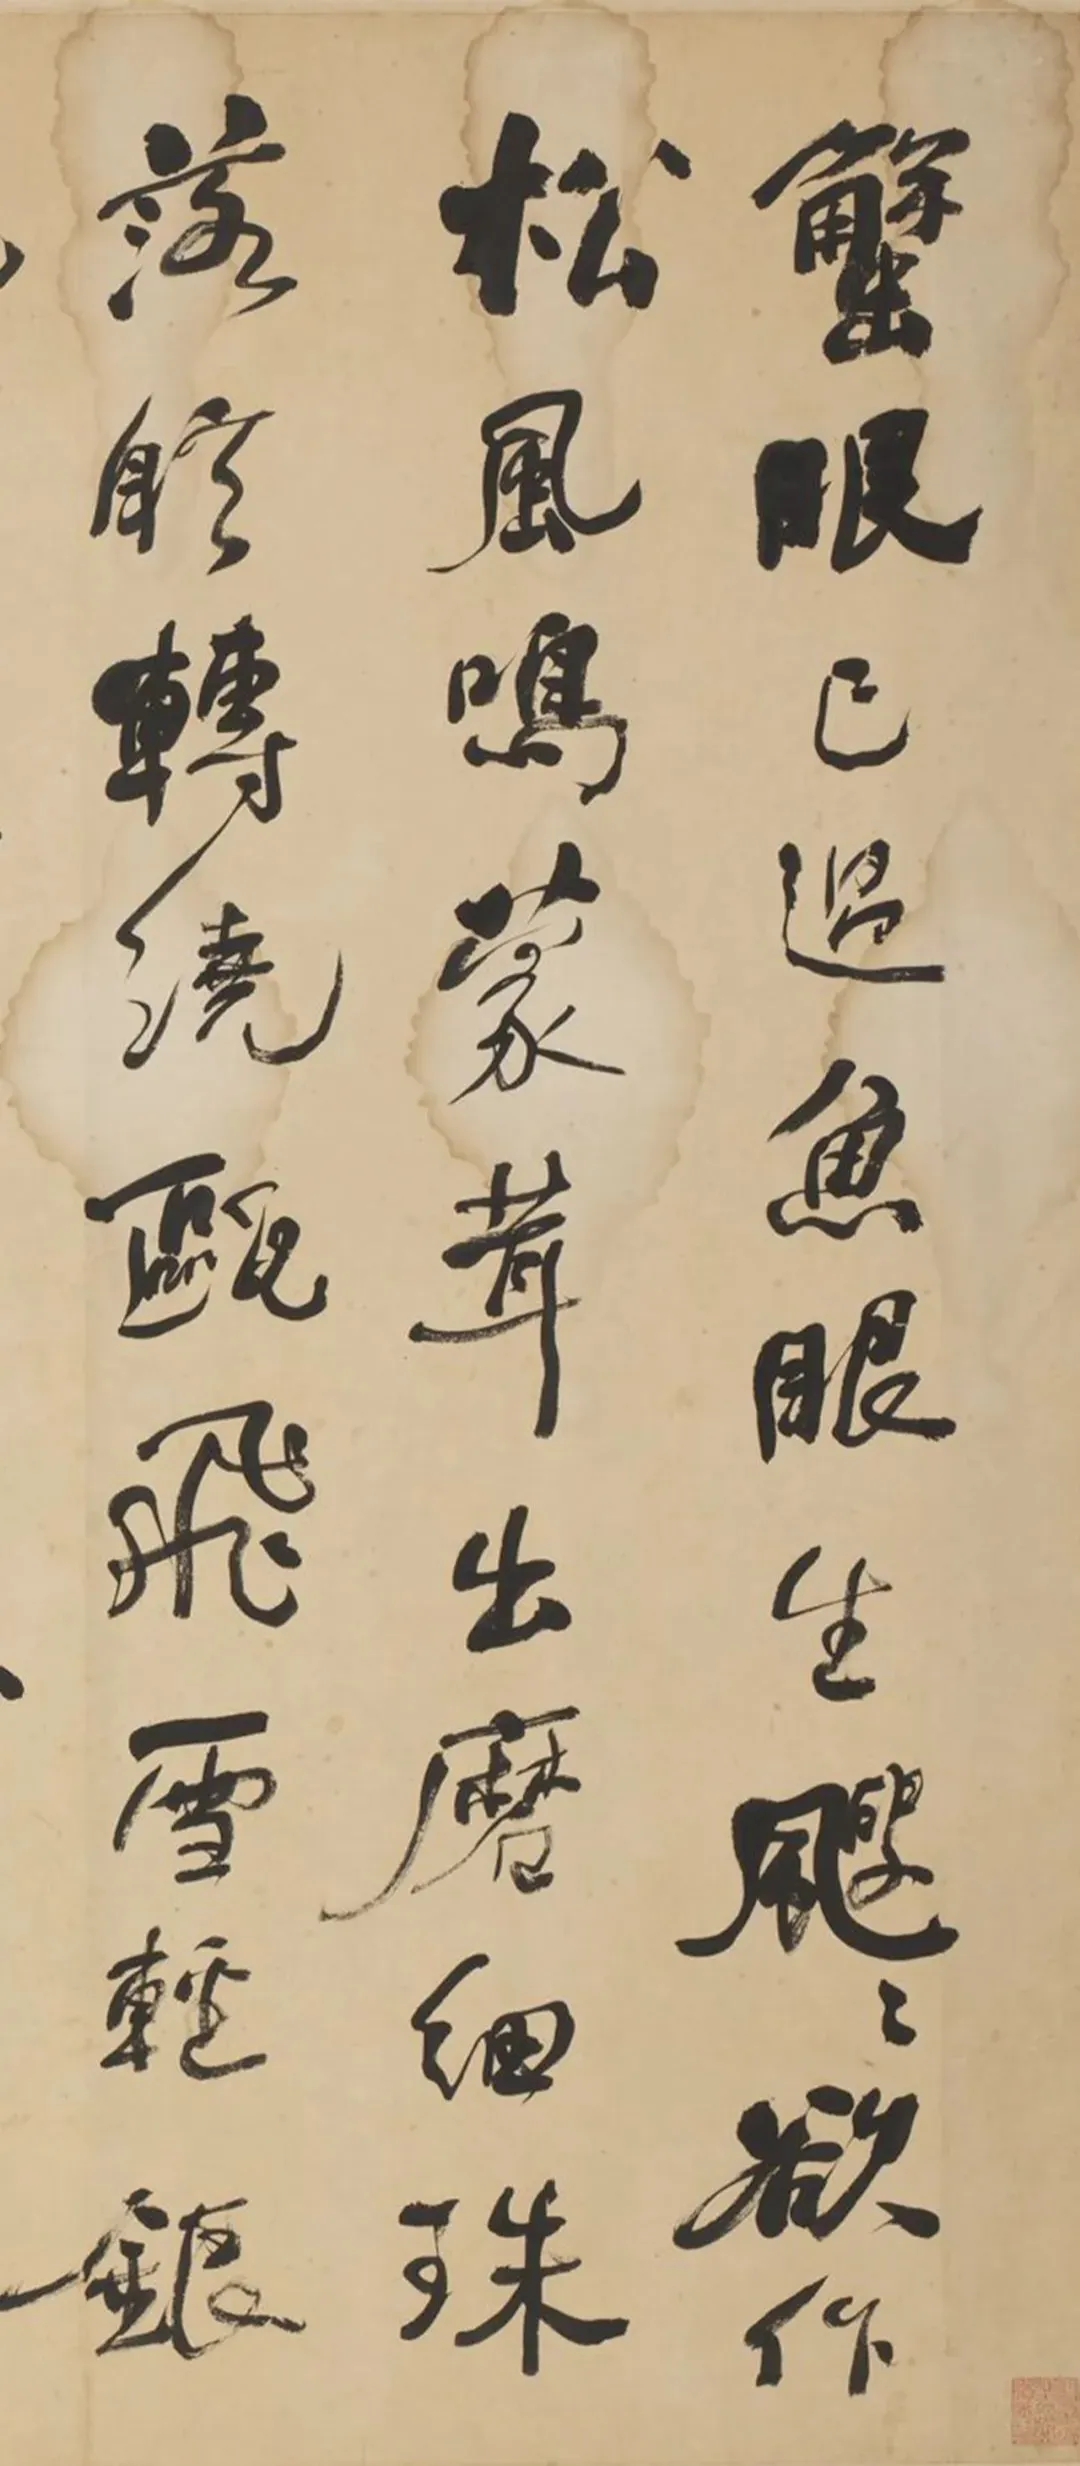 蟹眼已過魚眼生颼〻欲作
松風鳴蒙茸出磨細珠
落眩轉繞甌飛雪輕銀